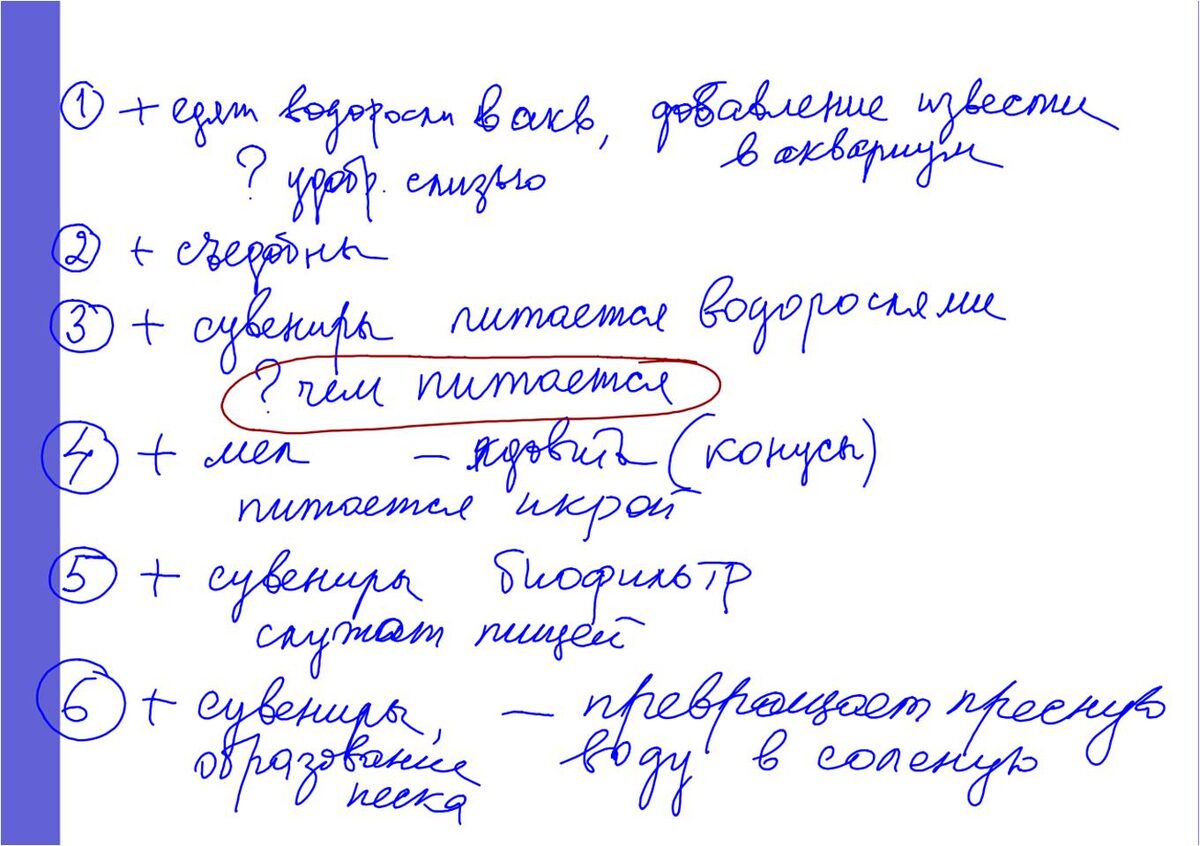 ① + едят водоросли в акв, добавление извести
? удобр. слизью в аквариум
② + съедобны
③ + сувениры питается водорослями
? чем питается
④ + мел – ядовиты (конусы)
питается икрой
⑤ + сувениры биофильтр
служат пищей
⑥ + сувениры, – превращает пресную
образование воду в соленую
песка